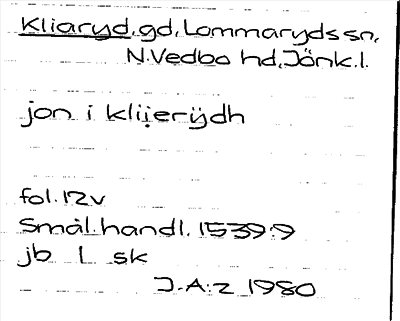 Kliaryd, gd, Lommaryds sn,
N. Vedbo hd, Jönk. l.
jon i kliierÿdh
fol. 12v
Smål. handl. 1539:9
jb 1 sk
J. A:z 1980